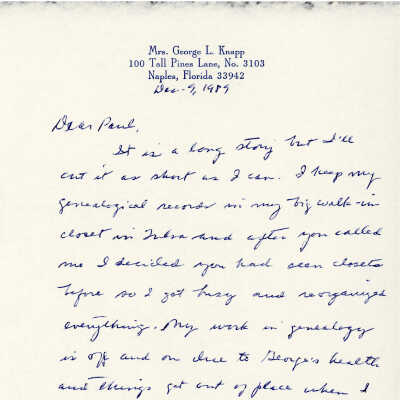 Mrs. George L. Knapp
100 Tall Pines Lane, No. 3103
Naples, Florida 33942
Dec-9, 1989
Dear Paul,
It is a long story but I'll
cut it as short as I can. I keep my
genealogical records in my big walk-in
closet in Tulsa and after you called
me I decided you had seen closets
before so I got busy and reorganized
everything. My work in genealogy
is off and on due to George's health
and things get out of place when I